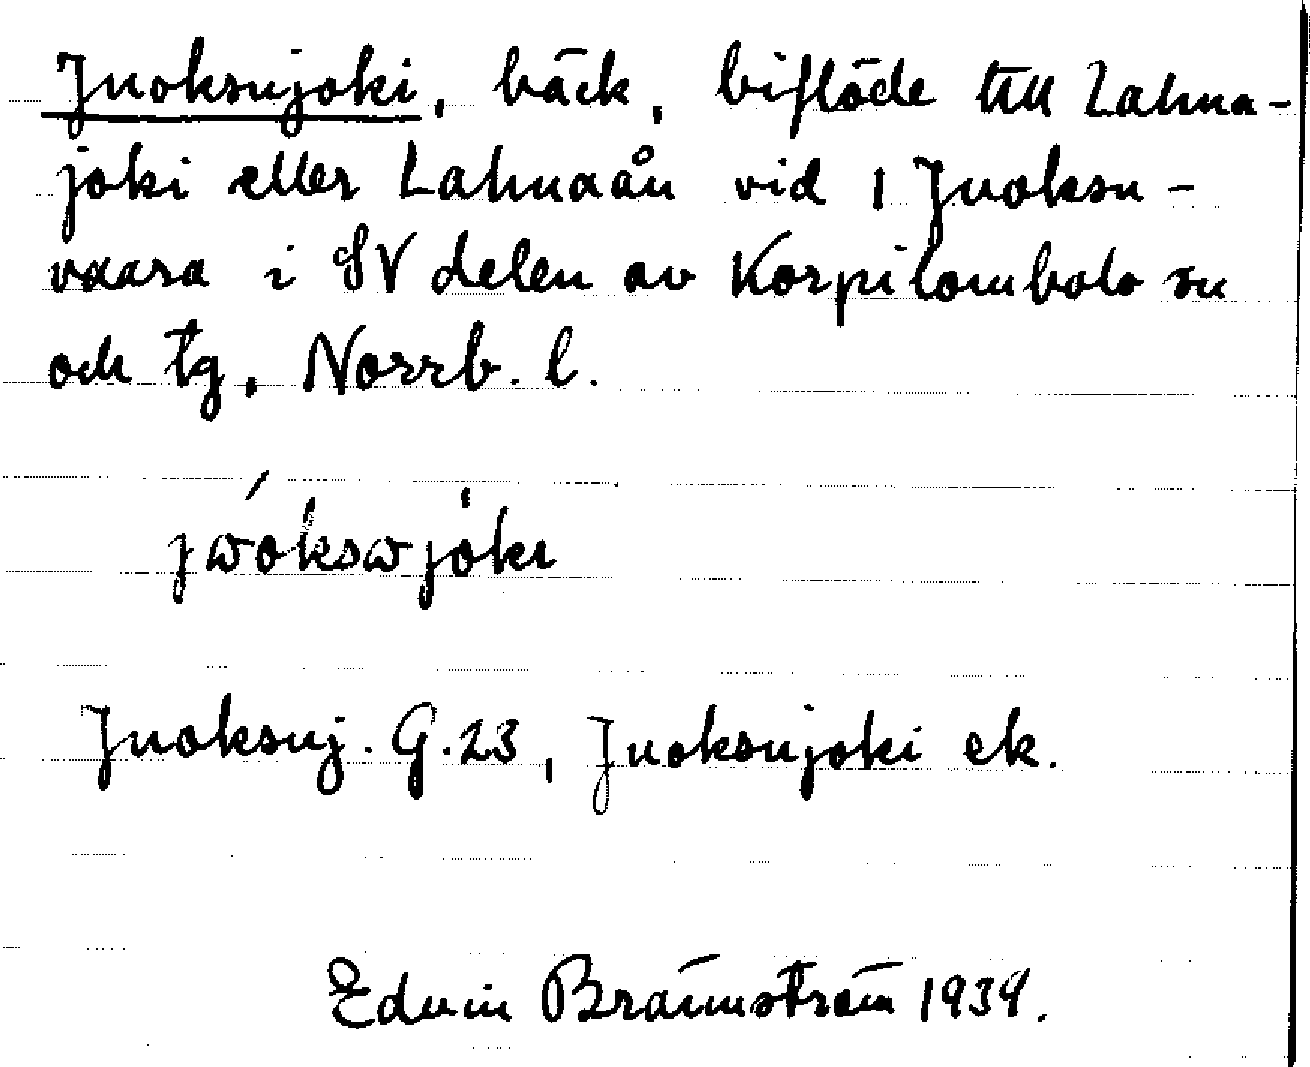 Juoksujoki, bäck, biflöde till Lahna-
joki eller Lahnaån vid 1 Juoksu-
vaara i SV delen av Korpilombolo sn
och tg, Norrb. l.
jwókswjòkı
Juoksuj. G.23, Juoksujoki ek.
Edvin Brännström 1934.